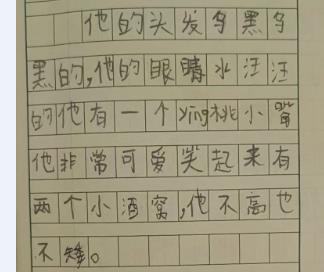 他的头发乌黑乌
黑的,他的眼睛水汪汪
的他有一个ying桃小嘴
他非常可爱笑起来有
两个小酒窝,他不高也
不矮。